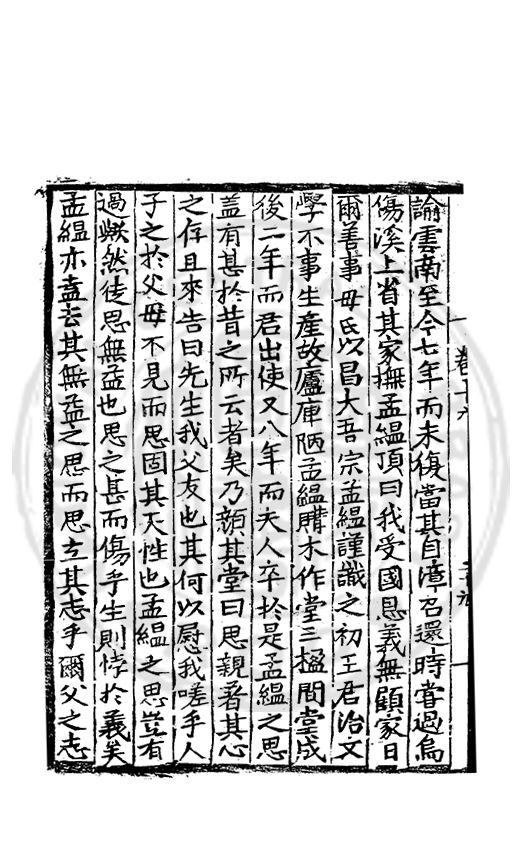 諭雲南至今七年而未復當其自漳召還時嘗過烏
傷溪上省其家撫孟緼頂曰我受國恩義無顧家日
爾善事母氏以昌大吾宗孟緼謹識之初王君治文
學不事生產故廬庳陋孟緼購木作堂三楹間堂成
後二年而君出使又八年而夫人卒於是孟緼之思
蓋有甚於昔之所云者矣乃顏其堂曰思親著其心
之存且來告曰先生我父友也其何以慰我嗟乎人
子之於父母不見而思固其天性也孟緼之思豈有
過歟然徒思無益也思之甚而傷乎生則悖於義矣
孟緼亦盍去其無益之思而思立其志乎爾父之志
卷十六